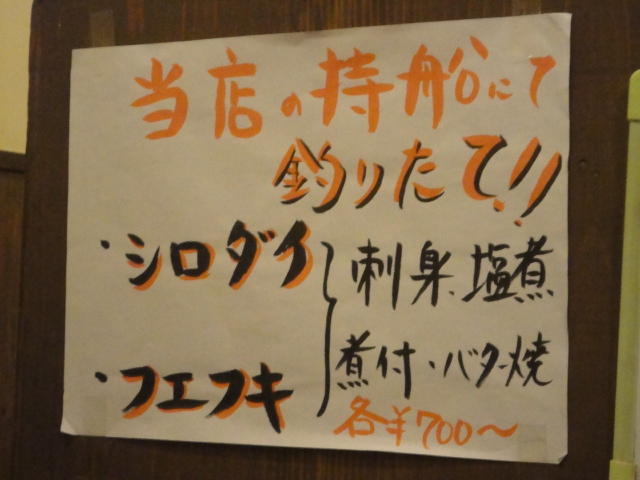 当店の持船にて
釣りたて!!
・シロダイ
・フエフキ
刺身、塩煮
煮付・バター焼
各¥700～